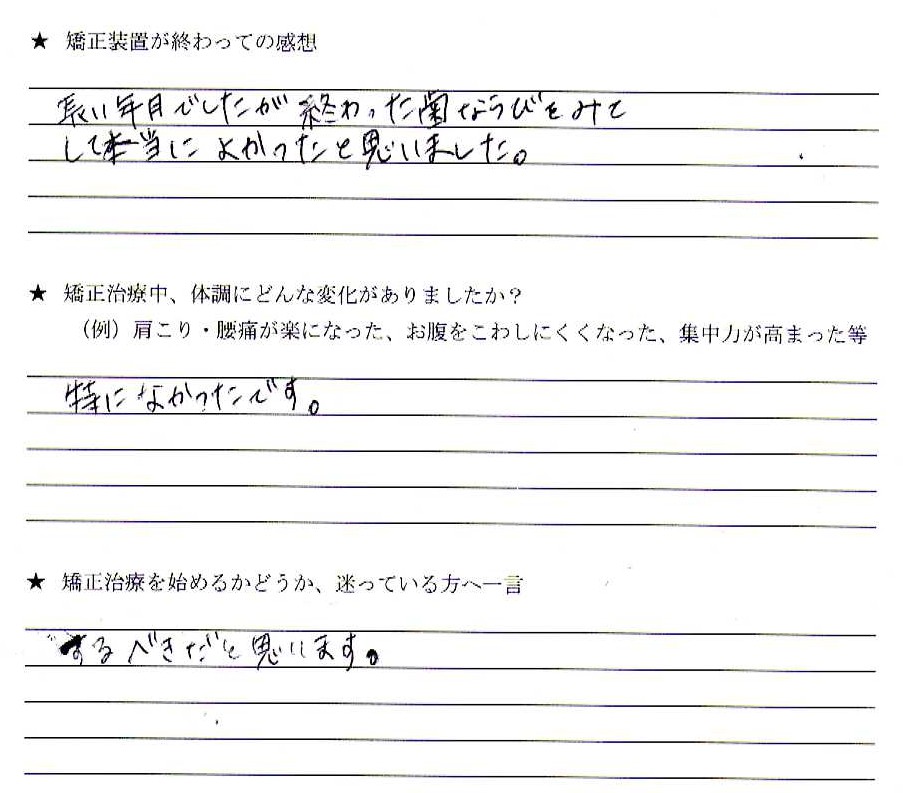 ★ 矯正装置が終わっての感想
長い年月でしたが終わった歯ならびをみて
して本当によかったと思いました。
★ 矯正治療中、体調にどんな変化がありましたか？
（例）肩こり・腰痛が楽になった、お腹をこわしにくくなった、集中力が高まった等
特になかったです。
★ 矯正治療を始めるかどうか、迷っている方へ一言
するべきだと思います。